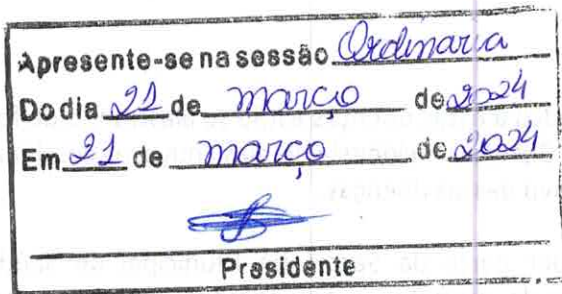 Apresente-se na sessão Ordinaria
Do dia 21 de março de 2024
Em 21 de março de 2024
Presidente